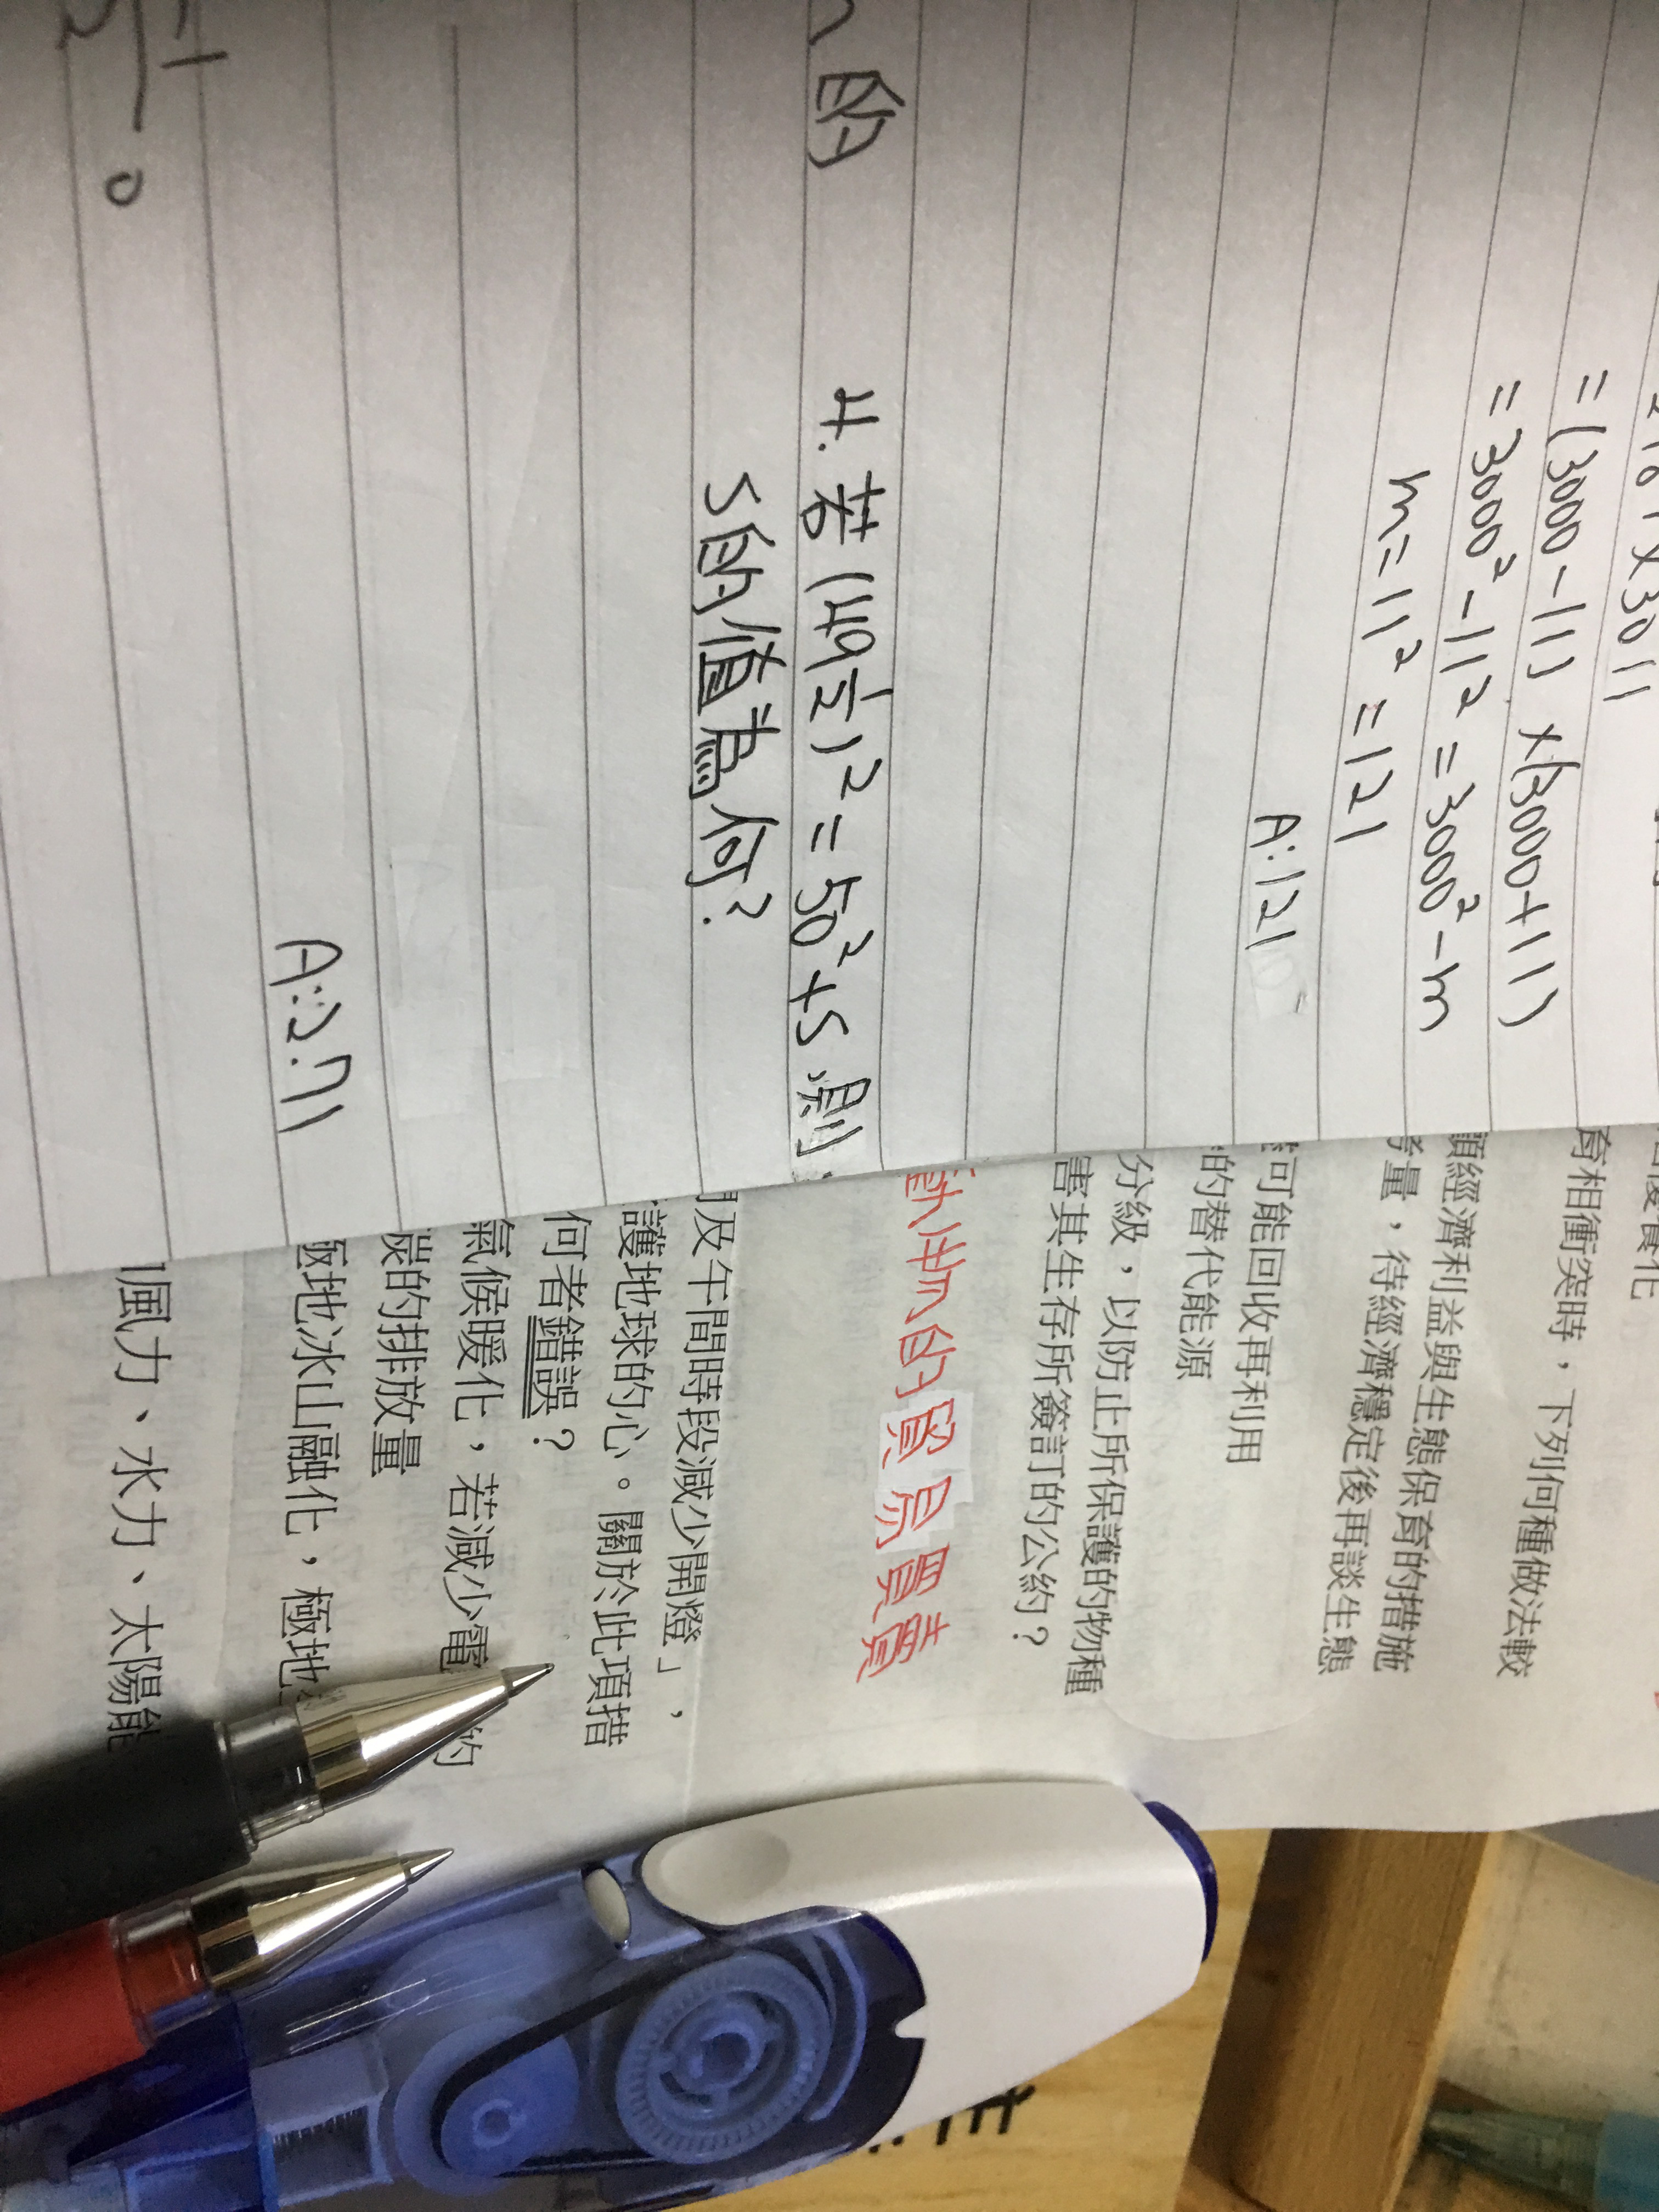 =(3000-11)×(3000+11)
=3000²-11²=3000²-m
m=11²=121
A:121
的
4.若(49½)²=50²+S,則
S的值為何?
A:271
育相衝突時，下列何種做法較
經濟利益與生態保育的措施
考量，待經濟穩定後再談生態
可能回收再利用
的替代能源
分級，以防止所保護的物種
害其生存所簽訂的公約？
動生物的貿易買賣
及午間時段減少開燈」，
護地球的心。關於此項措
何者錯誤？
氣候暖化，若減少電
碳的排放量
極地冰山融化，極地
風力、水力、太陽能